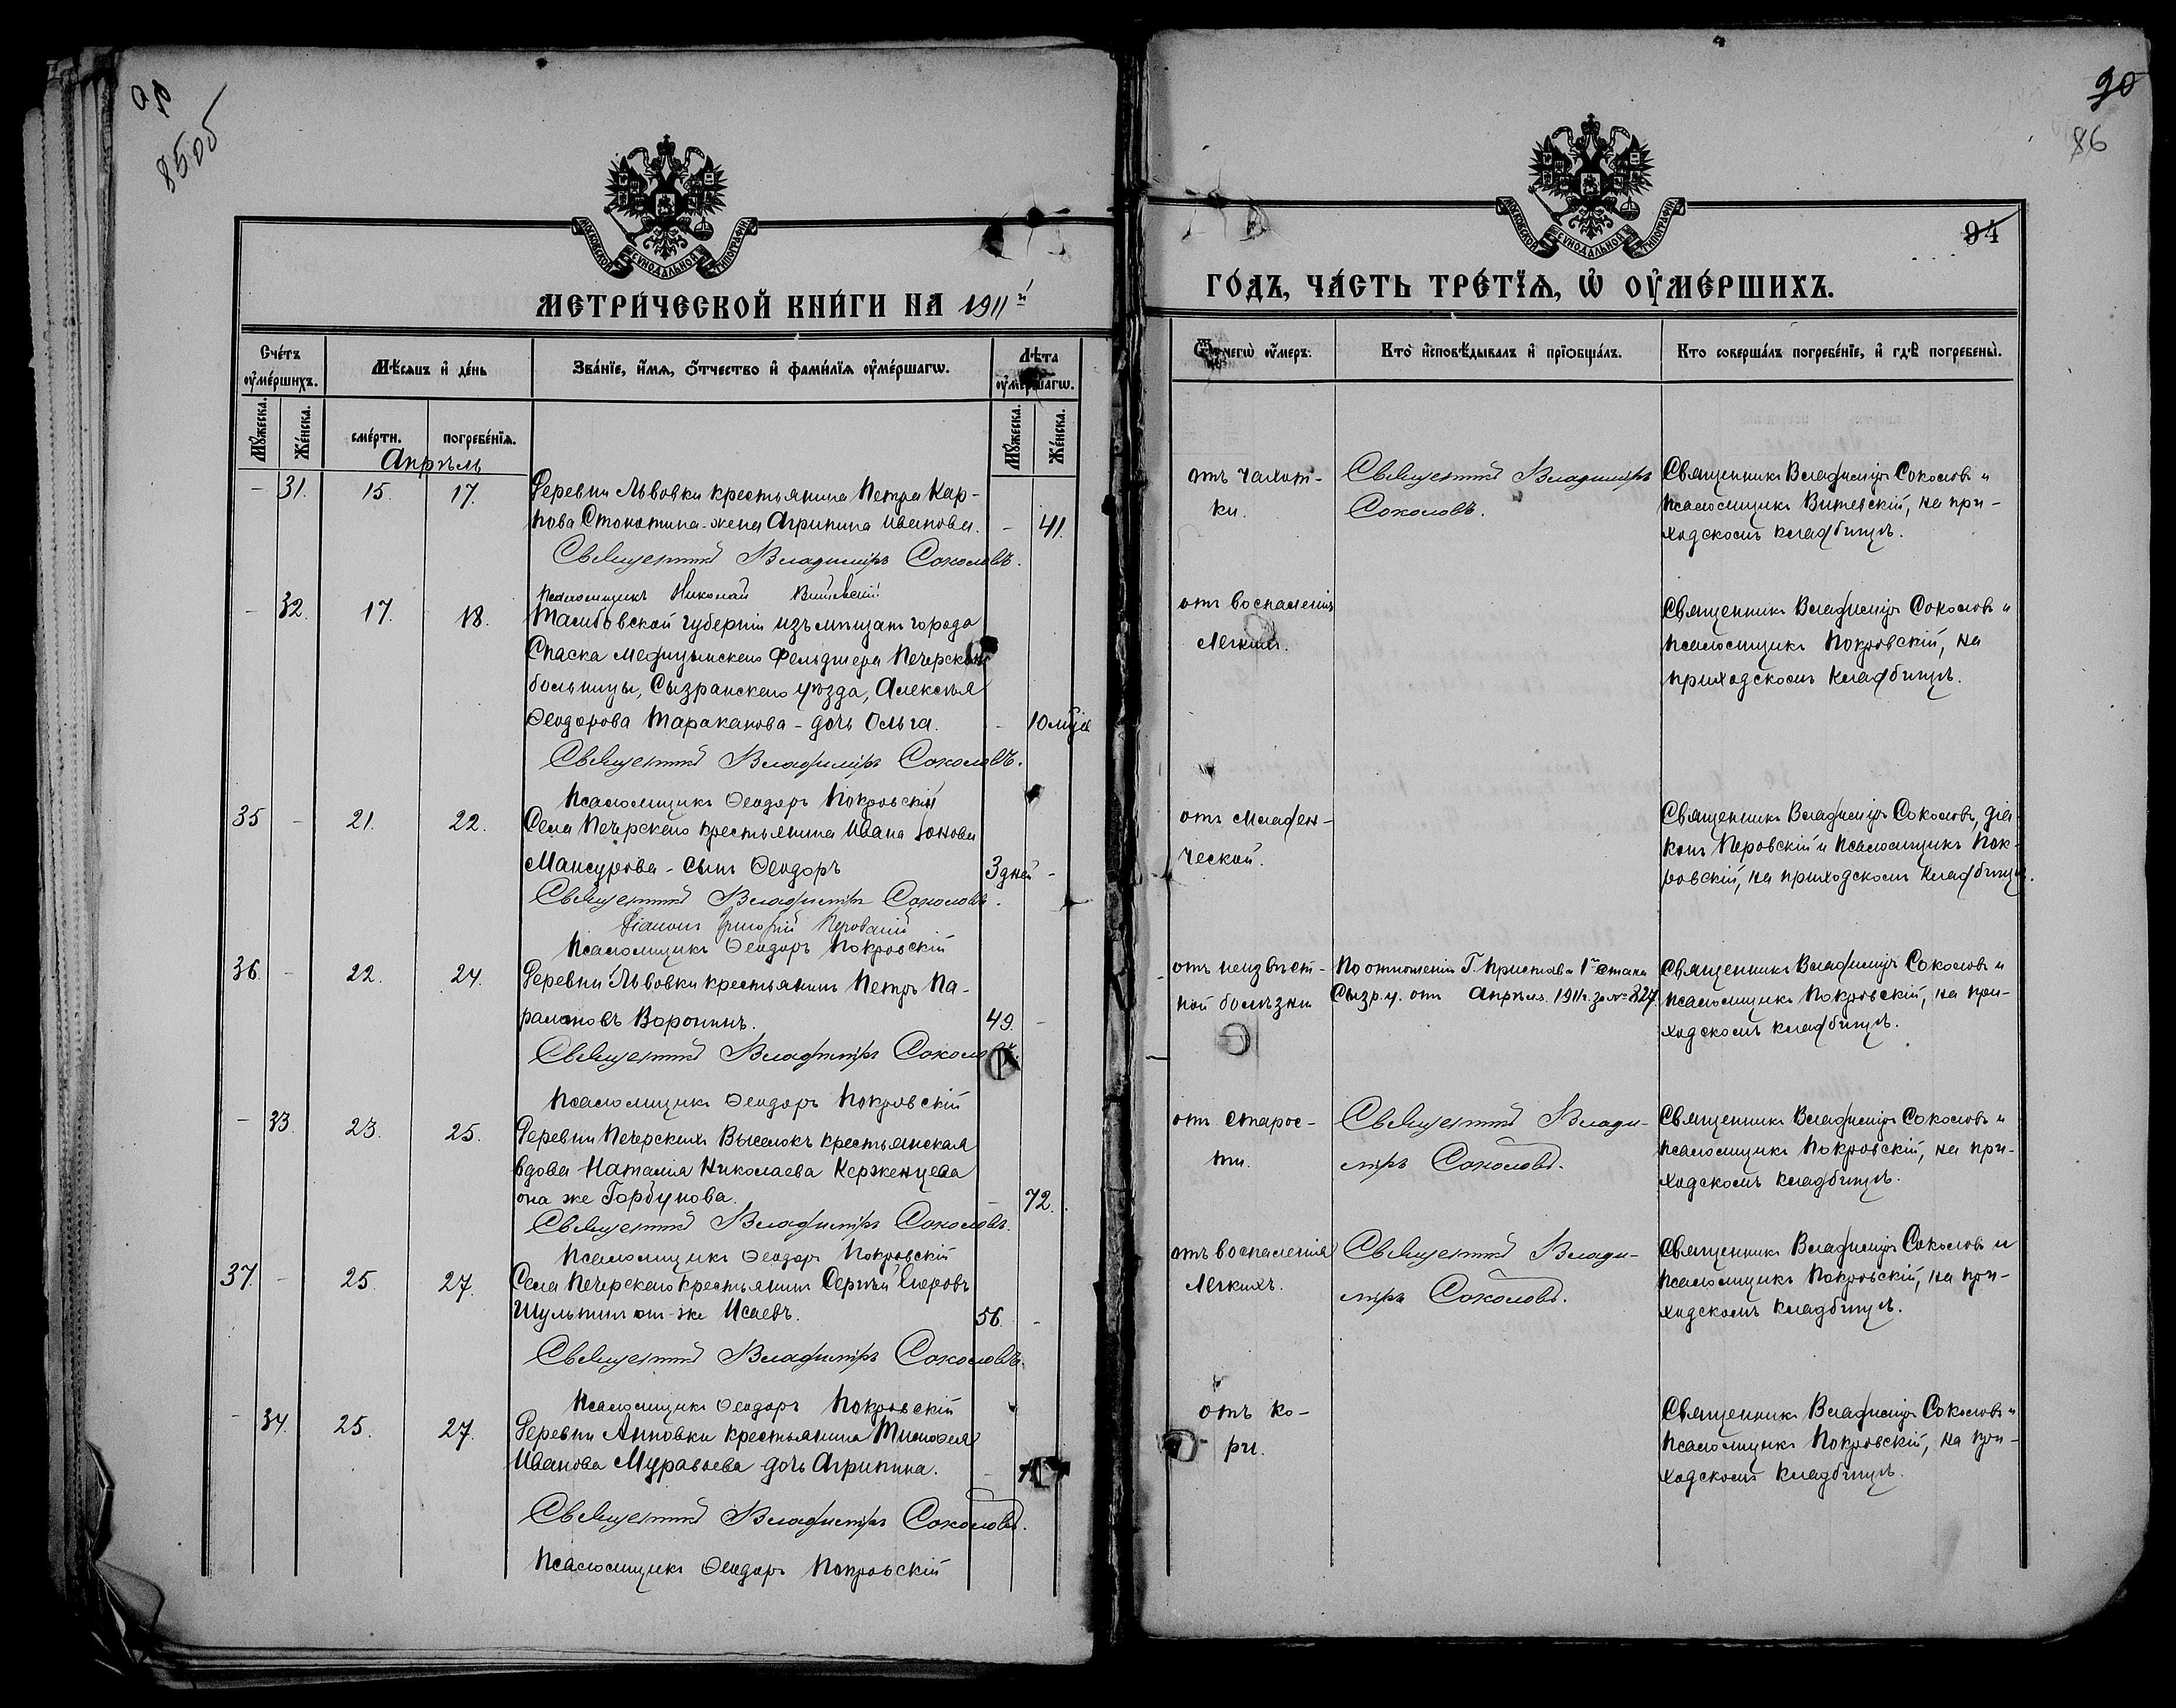 90
85об
МОСКОВСКОЙ СѴНОДАЛЬНОЙ ТИПОГРАФІИ
МЕТРИ́ЧЕСКОЙ КНИ́ГИ НА 1911й
Сче́тъ ᲂу҆ме́ршихъ.
Мѣ́сѧцъ и҆ де́нь
Зва́нїе, и҆́мѧ, ѻ҆́тчество и҆ фами́лїѧ ᲂу҆ме́ршагѡ.
Лѣ́та ᲂу҆ме́ршагѡ.
Мꙋ́жеска.
Же́нска.
сме́рти.
погребе́нїѧ.
Мꙋ́жеска.
Же́нска.
Апрѣль
- 31. 15. 17. Деревни Львовки крестьянина Петра Кар-
пова Стокотина-жена Агрипина Иванова. - 41.
Священникъ Владиміръ Соколовъ.
Псаломщикъ Николай Витевскій
- 32. 17. 18. Тамбовской губерніи изъ мѣщанъ города
Спаска медицинскаго фельдшера Печерской
больницы, Сызранскаго уѣзда, Алексѣя
Ѳеодорова Тараканова - дочь Ольга. - 10 мѣся
Священникъ Владиміръ Соколовъ.
Псаломщикъ Ѳеодоръ Покровскій
35 - 21. 22. Села Печерскаго крестьянина Ивана Іонова
Мансурова - сынъ Ѳеодоръ 3 дней -
Священникъ Владиміръ Соколовъ.
Діаконъ Григорій Перовскій
Псаломщикъ Ѳеодоръ Покровскій
36. - 22. 24. Деревни Львовки крестьянинъ Петръ Па-
рамоновъ Воронинъ. 49. -
Священникъ Владиміръ Соколовъ.
Псаломщикъ Ѳеодоръ Покровскій
- 33. 23. 25. Деревни Печерскихъ Выселокъ крестьянская
вдова Наталія Николаева Керженцева
она же Горбунова. - 72.
Священникъ Владиміръ Соколовъ.
Псаломщикъ Ѳеодоръ Покровскій
37. - 25. 27. Села Печерскаго крестьянинъ Сергѣй Егоровъ
Шульпинъ он-же Исаевъ. 56. -
Священникъ Владиміръ Соколовъ.
Псаломщикъ Ѳеодоръ Покровскій
- 34. 25. 27. Деревни Анновки крестьянина Тимоѳея
Иванова Муравьева дочь Агрипина. -
Священникъ Владиміръ Соколовъ.
Псаломщикъ Ѳеодоръ Покровскій
90
86
94
МОСКОВСКОЙ СѴНОДАЛЬНОЙ ТИПОГРАФІИ
ГО́ДЪ, ЧА́СТЬ ТРЕ́ТЇѦ, Ѡ҆ ОУ҆МЕ́РШИХЪ.
Ѿ чегѡ̀ ᲂу҆́меръ.
Кто̀ и҆сповѣ́дывалъ и҆ прїѡбща́лъ.
Кто соверша́лъ погребе́нїе, и҆ гдѣ̀ погребены̀.
отъ чахот-
ки.
Священникъ Владиміръ
Соколовъ.
Священникъ Владиміръ Соколовъ и
псаломщикъ Витевскій, на при-
ходскомъ кладбищѣ.
отъ воспаленія
легкихъ.
Священникъ Владиміръ Соколовъ и
псаломщикъ Покровскій, на
приходскомъ кладбищѣ.
отъ младен-
ческой.
Священникъ Владиміръ Соколовъ, діа-
конъ Перовскій и псаломщикъ Пок-
ровскій, на приходскомъ кладбищѣ.
отъ неизвѣст-
ной болѣзни
По отношенію Г. Пристава 1го стана
Сызр. у. отъ Апрѣля 1911г. за № 827.
Священникъ Владиміръ Соколовъ и
псаломщикъ Покровскій, на при-
ходскомъ кладбищѣ.
отъ старос-
ти.
Священникъ Влади-
міръ Соколовъ.
Священникъ Владиміръ Соколовъ и
псаломщикъ Покровскій, на при-
ходскомъ кладбищѣ.
отъ воспаленія
легкихъ.
Священникъ Влади-
міръ Соколовъ.
Священникъ Владиміръ Соколовъ и
псаломщикъ Покровскій, на при-
ходскомъ кладбищѣ.
отъ ко-
ри.
Священникъ Владиміръ Соколовъ и
псаломщикъ Покровскій, на при-
ходскомъ кладбищѣ.